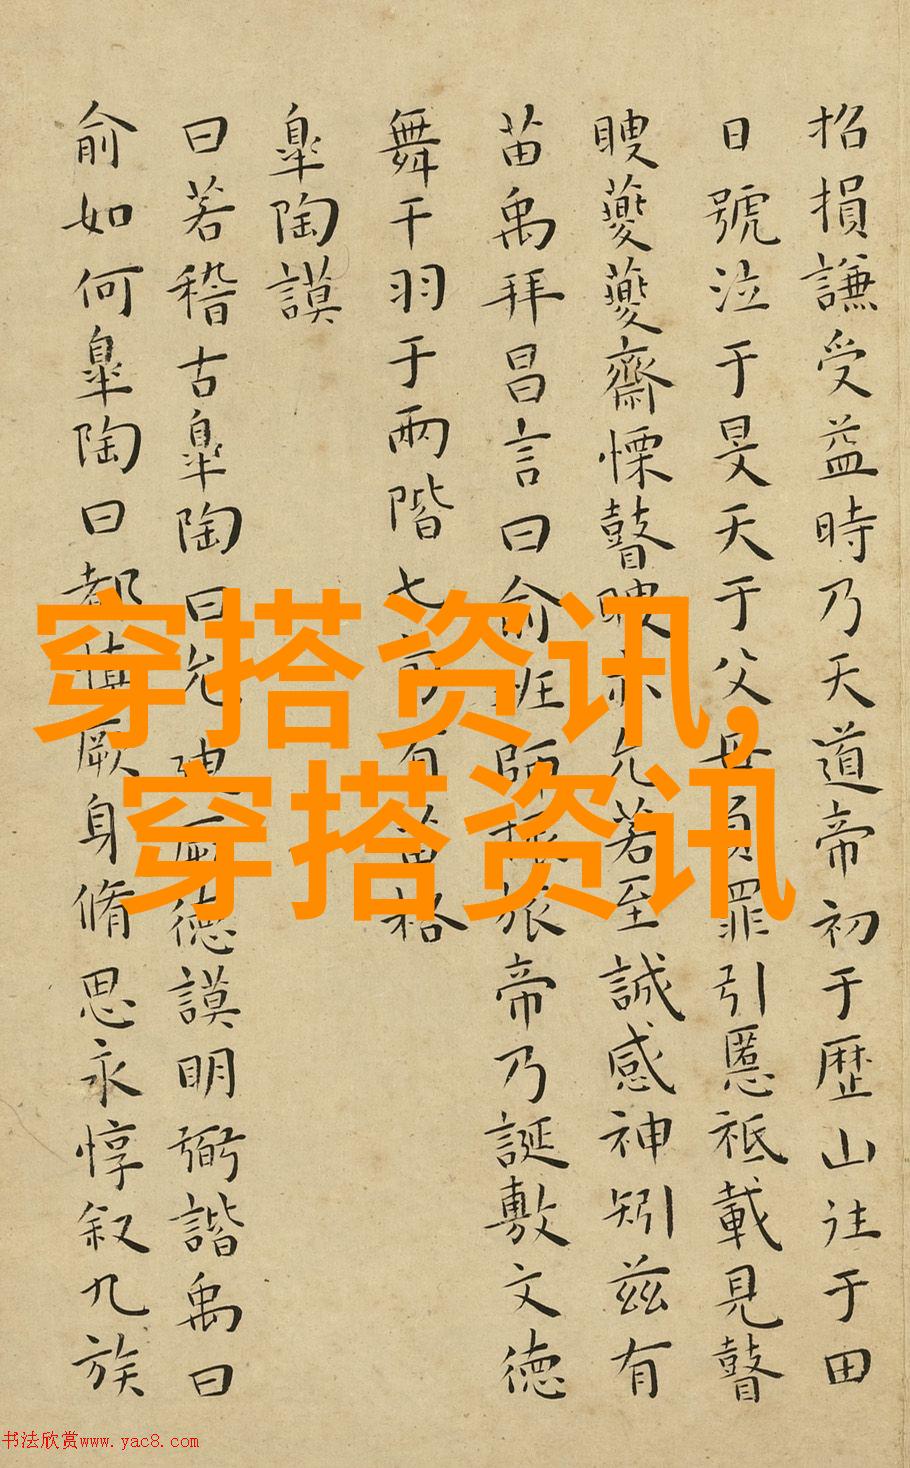 招損謙受益時乃天道帝初于歴山往于田
日號泣于旻天于父母負罪引慝祗載見瞽
瞍夔夔齋慄瞽瞍亦允若至誠感神矧茲有
苗禹拜昌言曰俞班師振旅帝乃誕敷文德
舞干羽于兩階七旬有苗格
皐陶謨
曰若稽古皐陶曰允迪厥德謨明弼諧禹曰
俞如何皐陶曰都慎厥身脩思永惇叙九族
穿搭资讯,
穿搭资讯
书法欣赏www.yac8.com